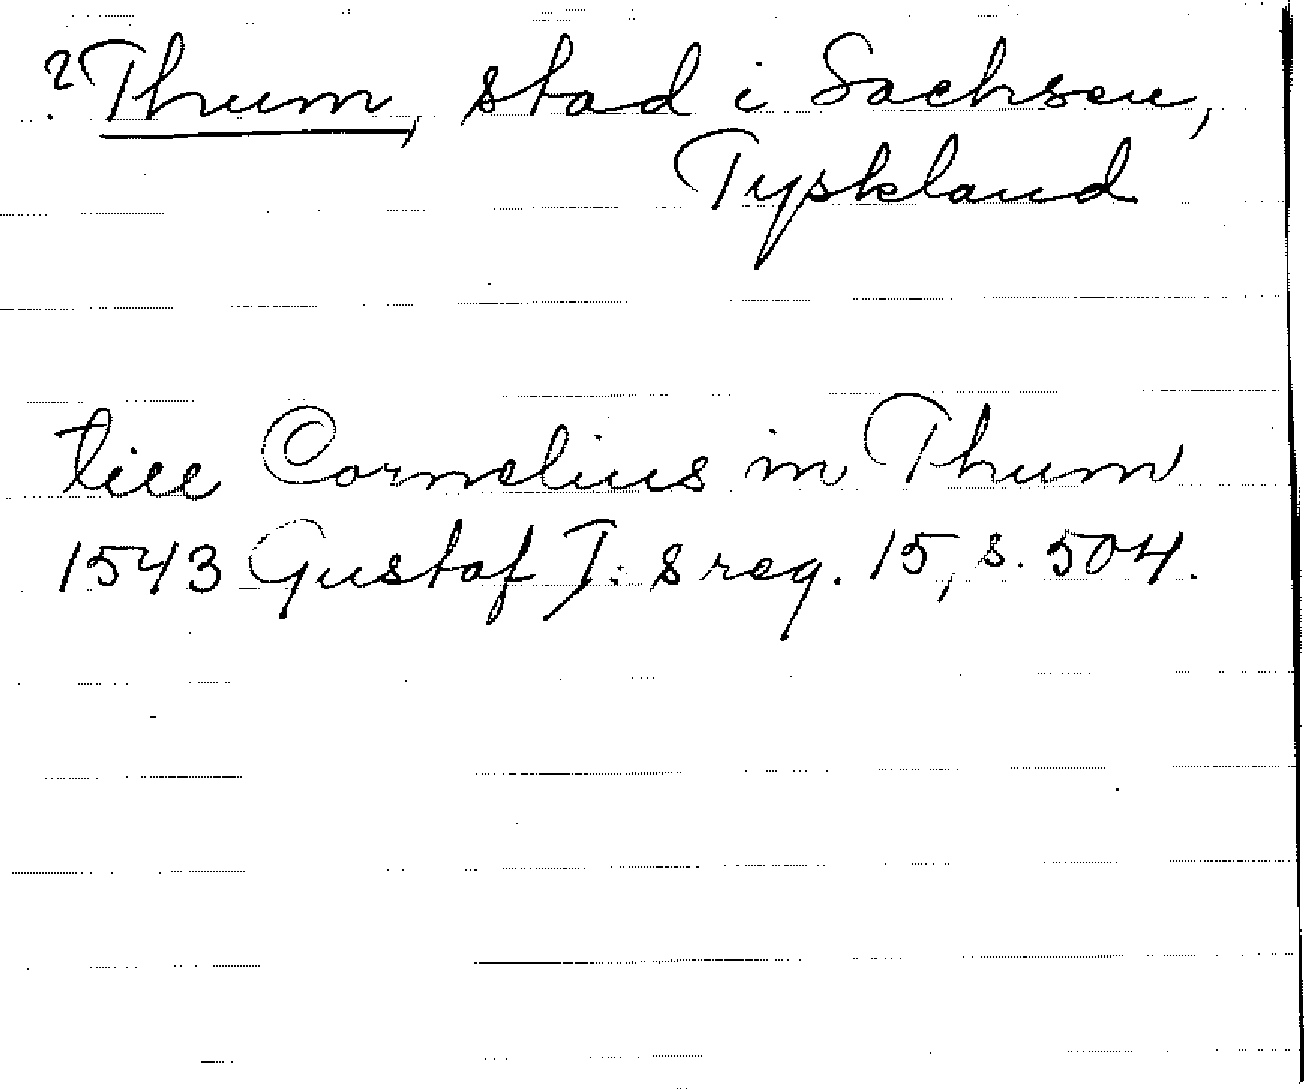 ? Thum, stad i Sachsen,
Tyskland
till Cornelius in Thum
1543 Gustaf I:s reg. 15, s. 504.